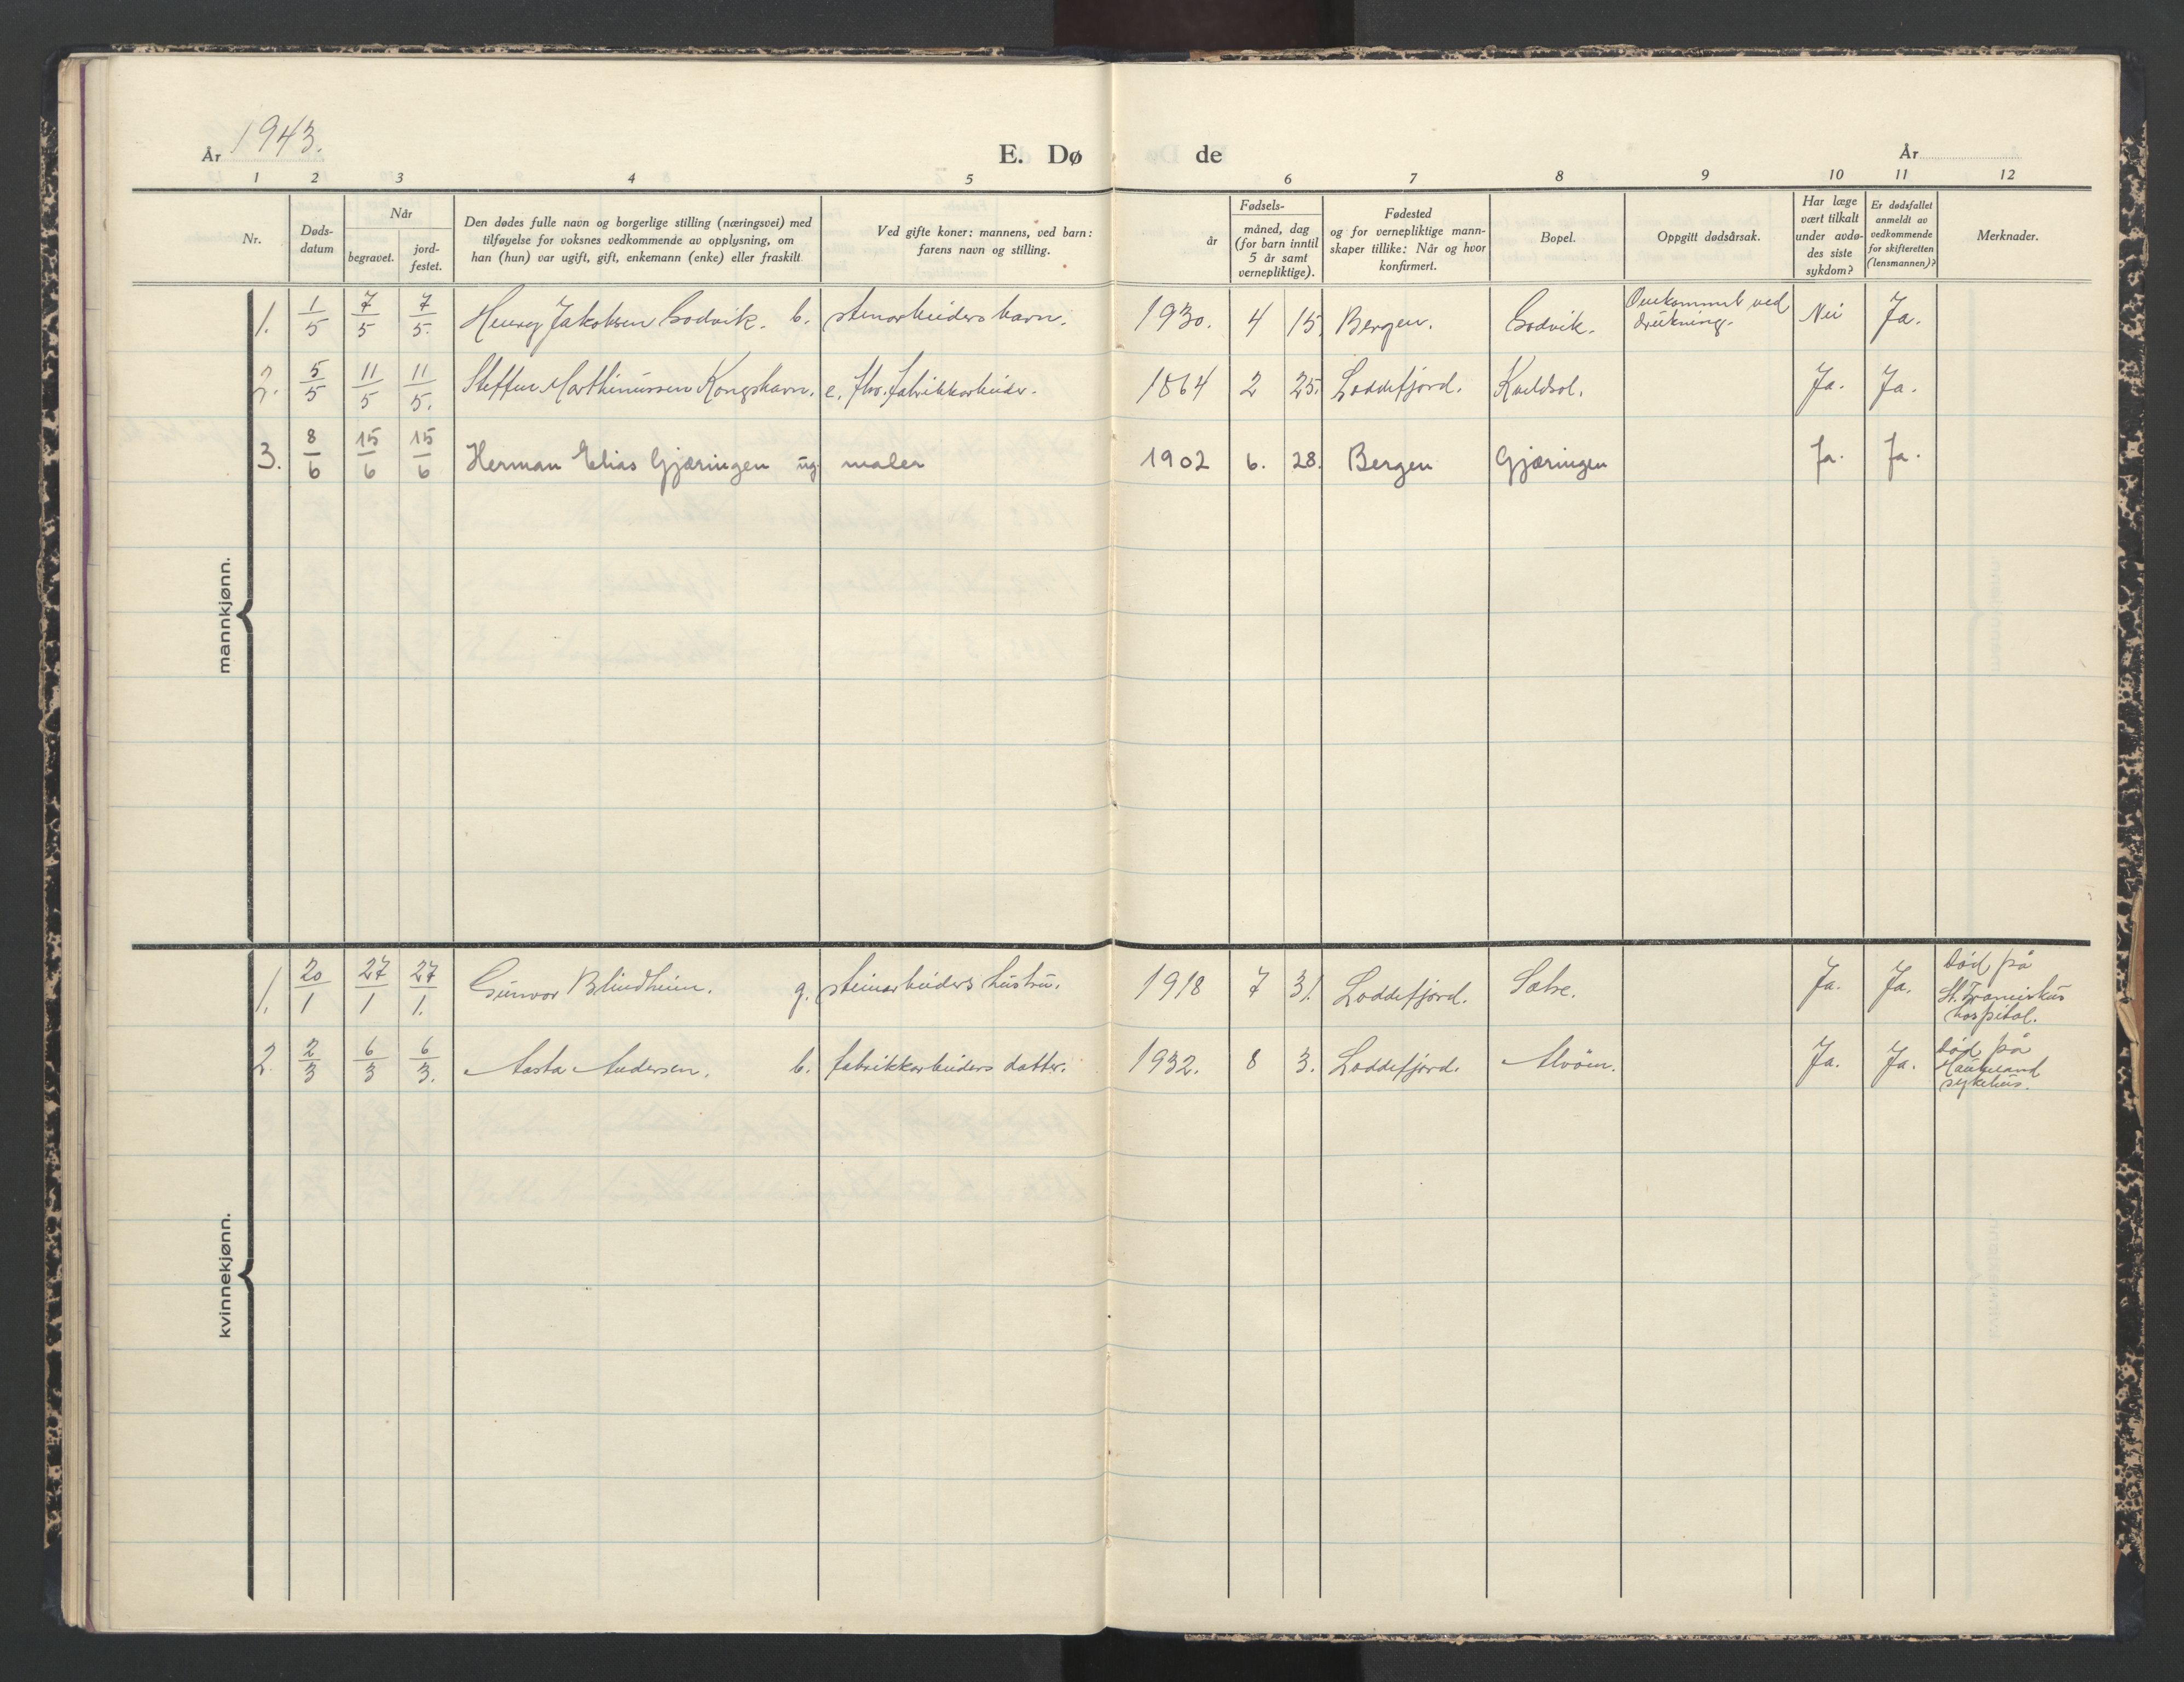 År 1943.
E. Dø de
År
1 2 3 4 5 6 7 8 9 10 11 12
Nr.
Døds-
datum
Når
begravet.
jord-
festet.
Den dødes fulle navn og borgerlige stilling (næringsvei) med
tilføyelse for voksnes vedkommende av opplysning, om
han (hun) var ugift, gift, enkemann (enke) eller fraskilt
Ved gifte koner: mannens, ved barn:
farens navn og stilling.
Fødsels-
år
måned, dag
(for barn inntil
5 år samt
vernepliktige).
Fødested
og for vernepliktige mann-
skaper tillike: Når og hvor
konfirmert.
Bopel.
Oppgitt dødsårsak.
Har læge
vært tilkalt
under avdø-
des siste
sykdom?
Er dødsfallet
anmeldt av
vedkommende
for skifteretten
(lensmannen)?
Merknader.
mannkjønn.
1. 1/5 7/5 7/5. Henry Jakobsen Godvik. b. stenarbeiders barn. 1930. 4 15. Bergen. Godvik. Omkommet ved
drukning. Nei Ja.
2. 5/5 11/5 11/5. Steffen Marthinussen Kongshavn. e. fhv. fabrikkarbeider. 1864 2 25. Loddefjord. Kveldsol. Ja. Ja.
3. 8/6 15/6 15/6 Herman Elias Gjæringen ug. maler 1902 6. 28. Bergen Gjæringen Ja. Ja.
kvinnekjønn.
1. 20/1 27/1 27/1. Gunvor Blindheim. g. steinarbeiders hustru. 1918 7 31. Loddefjord. Sætre. Ja. Ja. Död på
St. Franciskus
hospital.
2. 2/3 6/3 6/3. Aasta Andersen. b. fabrikkarbeiders datter. 1932. 8 3. Loddefjord. Alvöen. Ja. Ja. Död på
Haukeland
sykehus.